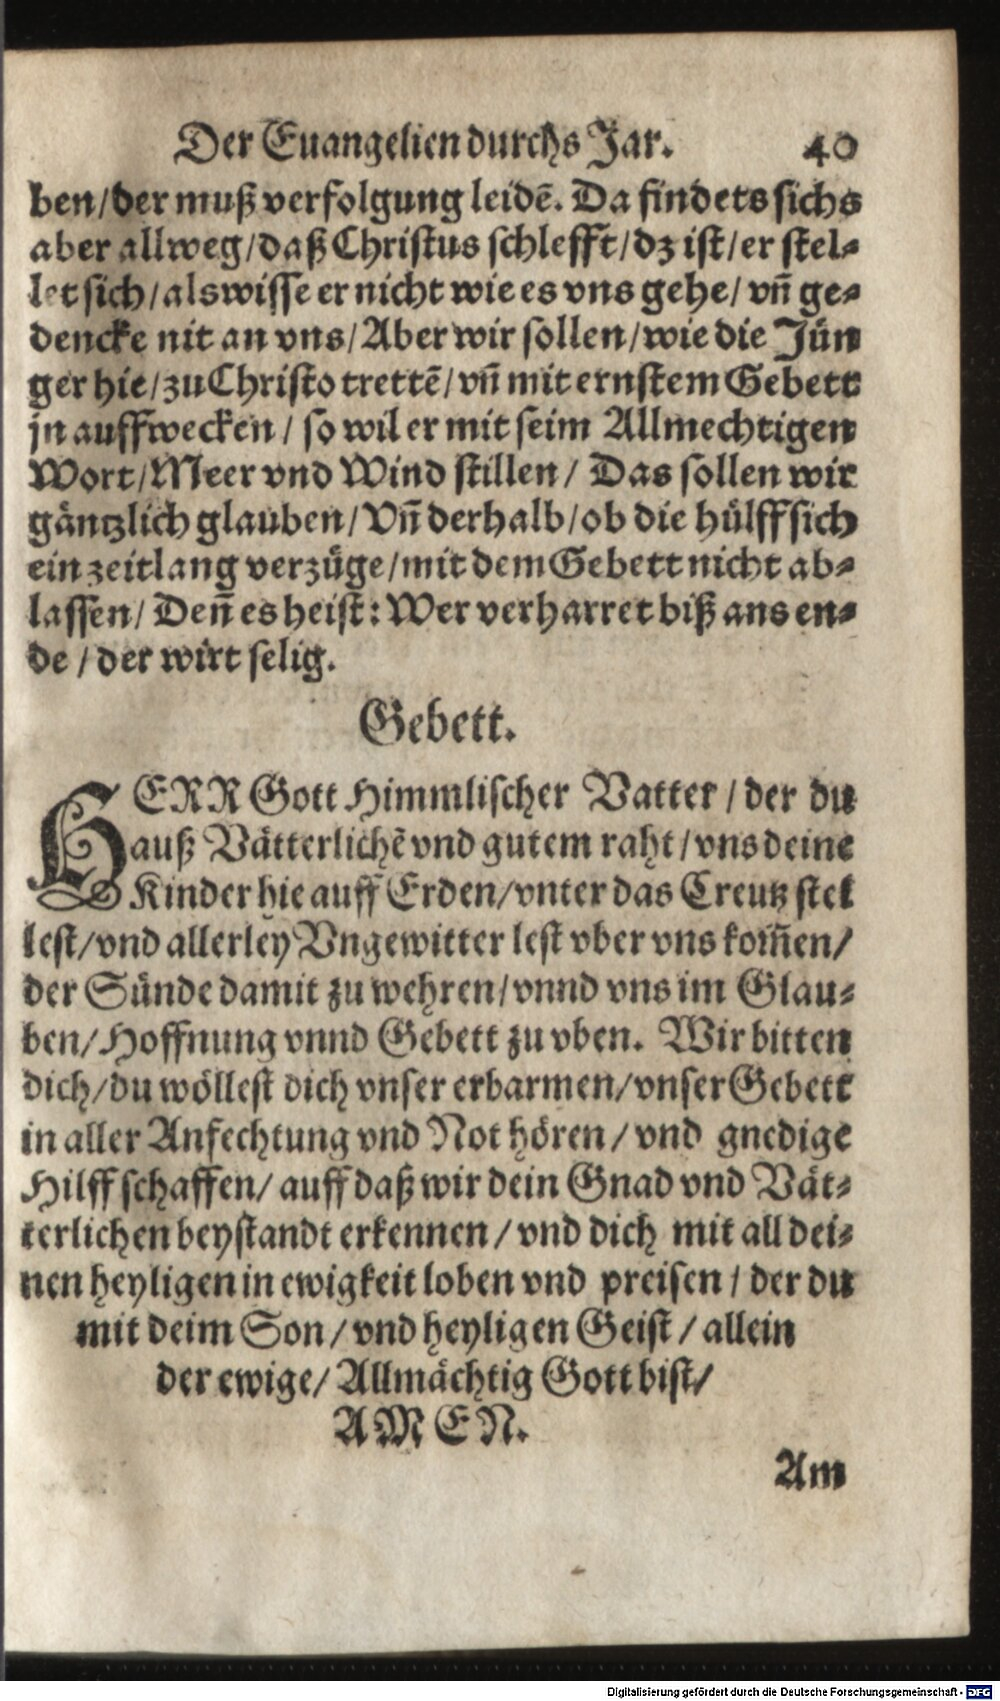 Der Euangelien durchs Jar. 40
ben/der muß verfolgung leidē. Da findets sichs
aber allweg/daß Christus schlefft/dz ist/er stel-
let sich/als wisse er nicht wie es vns gehe/ vn̄ ge-
dencke nit an vns/Aber wir sollen/wie die Jün
ger hie/zu Christo trettē/vn̄ mit ernstem Gebett
jn auffwecken/ so wil er mit seim Allmechtigen
Wort/Meer vnd Wind stillen/ Das sollen wir
gäntzlich glauben/Vn̄ derhalb/ob die hülff sich
ein zeitlang verzüge/mit dem Gebett nicht ab-
lassen/ Deñ es heist: Wer verharret biß ans en-
de/der wirt selig.
Gebett.
HERR Gott Himmlischer Vatter/der du
auß Vätterlichē vnd gutem raht/vns deine
Kinder hie auff Erden/vnter das Creutz stel
lest/vnd allerley Vngewitter lest vber vns kom̄en/
der Sünde damit zu wehren/vnnd vns im Glau-
ben/Hoffnung vnnd Gebett zu vben. Wir bitten
dich/du wöllest dich vnser erbarmen/vnser Gebett
in aller Anfechtung vnd Not hören/vnd gnedige
Hilff schaffen/auff daß wir dein Gnad vnd Vät-
terlichen beystandt erkennen/vnd dich mit all dei-
nen heyligen in ewigkeit loben vnd preisen/der du
mit deim Son/vnd heyligen Geist/allein
der ewige/Allmächtig Gott bist/
AMEN.
Am
Digitalisierung gefördert durch die Deutsche Forschungsgemeinschaft - DFG